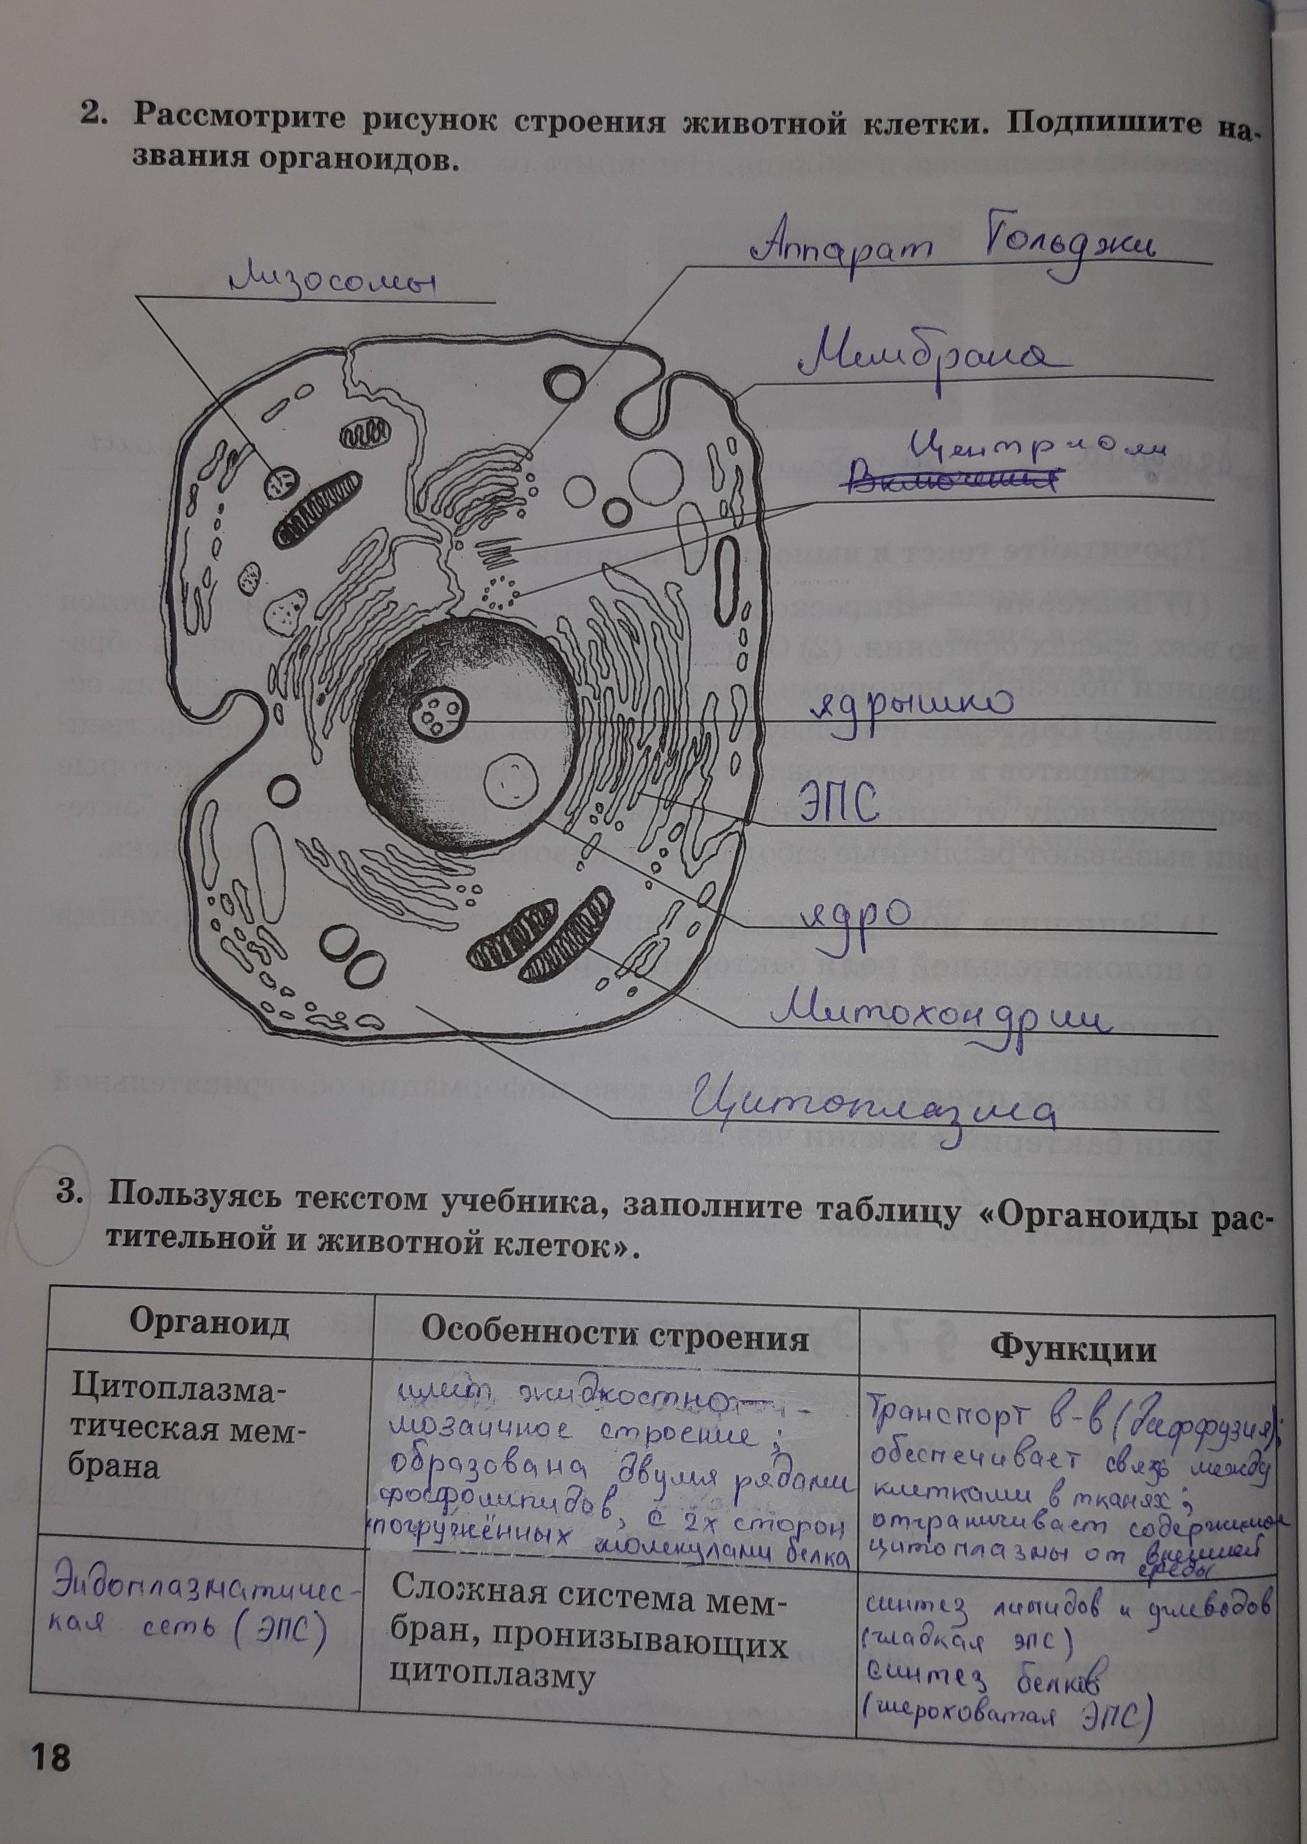 2. Рассмотрите рисунок строения животной клетки. Подпишите на-
звания органоидов.
Аппарат Гольджи
Лизосомы
Мембрана
Центриоли
Включения
ядрышко
ЭПС
ядро
Митохондрии
Цитоплазма
3. Пользуясь текстом учебника, заполните таблицу «Органоиды рас-
тительной и животной клеток».
Органоид
Особенности строения
Функции
Цитоплазма-
тическая мем-
брана
имеет жидкостно-
мозаичное строение;
образована двумя рядами
фосфолипидов, с 2х сторон
погружённых молекулами белка
Транспорт в-в (диффузия);
обеспечивает связь между
клетками в тканях;
отграничивает содержимое
цитоплазмы от внешней
среды
Эндоплазматичес-
кая сеть (ЭПС)
Сложная система мем-
бран, пронизывающих
цитоплазму
синтез липидов и углеводов
(гладкая эпс)
синтез белков
(шероховатая ЭПС)
18